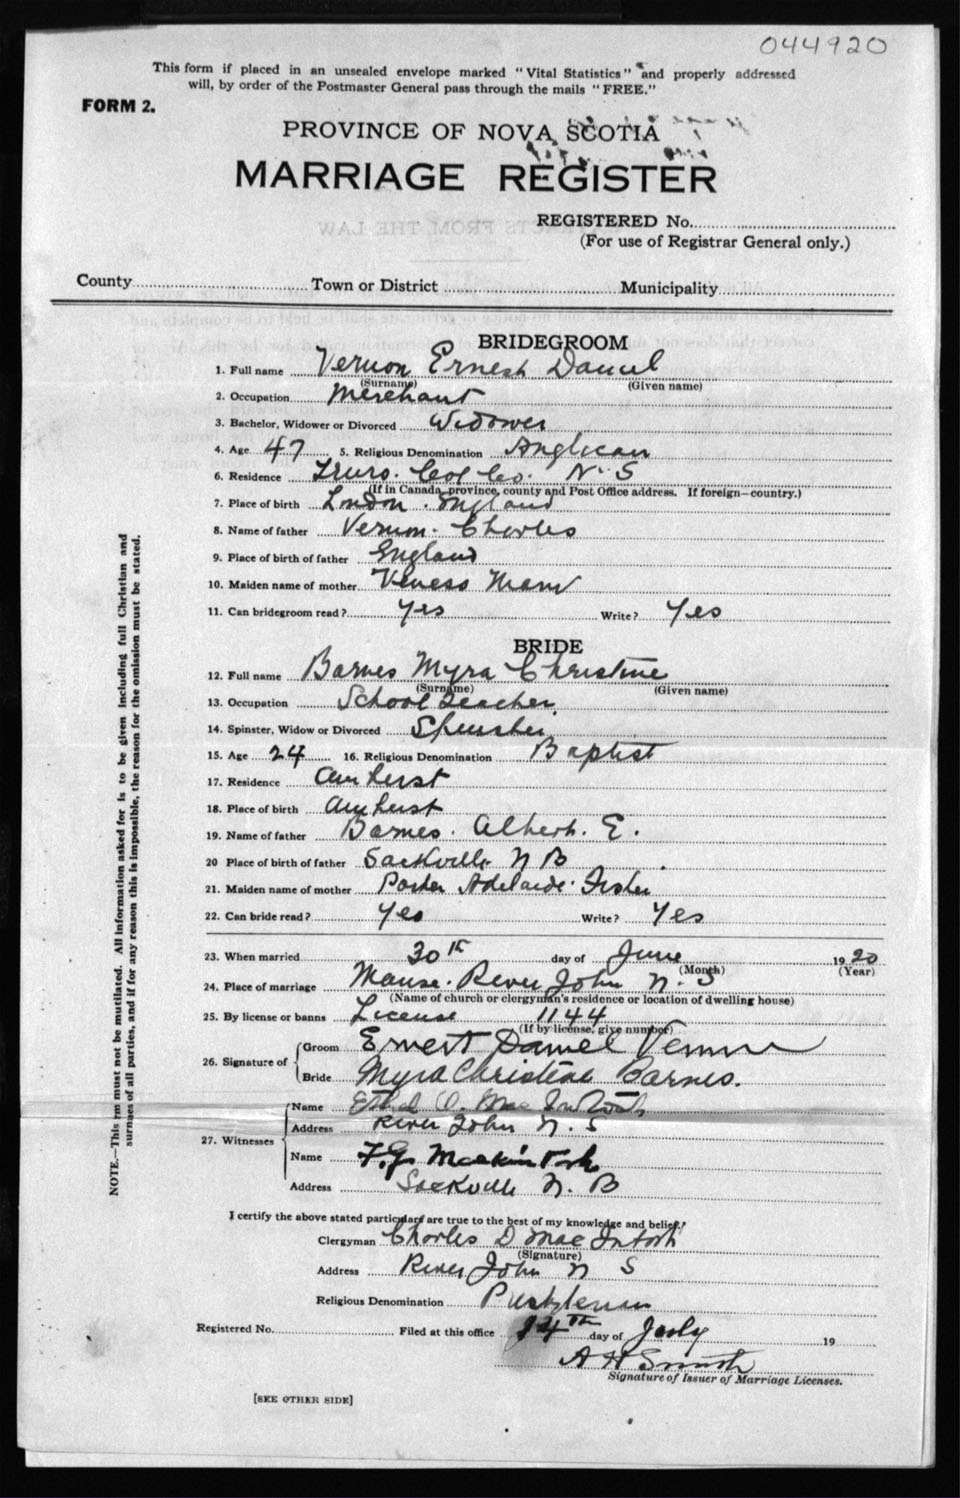 044920
This form if placed in an unsealed envelope marked "Vital Statistics" and properly addressed
will, by order of the Postmaster General pass through the mails "FREE."
FORM 2.
PROVINCE OF NOVA SCOTIA
MARRIAGE REGISTER
REGISTERED No.
(For use of Registrar General only.)
County Town or District Municipality
BRIDEGROOM
1. Full name Vernon Ernest Daniel
(Surname) (Given name)
2. Occupation Merchant
3. Bachelor, Widower or Divorced Widower
4. Age 47 5. Religious Denomination Anglican
6. Residence Truro. Col Co. N. S
(If in Canada, province, county and Post Office address. If foreign—country.)
7. Place of birth London. England
8. Name of father Vernon. Charles
9. Place of birth of father England
10. Maiden name of mother Veness Mary
11. Can bridegroom read? Yes Write? Yes
BRIDE
12. Full name Barnes Myra Christine
(Surname) (Given name)
13. Occupation School Teacher
14. Spinster, Widow or Divorced Spinster
15. Age 24 16. Religious Denomination Baptist
17. Residence Amherst
18. Place of birth Amherst
19. Name of father Barnes. Albert. E.
20 Place of birth of father Sackville N B
21. Maiden name of mother Porter Adelaide
22. Can bride read? Yes Write? Yes
23. When married 30th day of June 1920
(Month) (Year)
24. Place of marriage Manse. River John N. S
(Name of church or clergyman's residence or location of dwelling house)
25. By license or banns License 1144
(If by license, give number)
26. Signature of Groom Ernest Daniel Vernon
Bride Myra Christine Barnes.
27. Witnesses
Name Ethel O. MacIntosh
Address River John N. S
Name F. G. Mackintosh
Address Sackville N. B
I certify the above stated particulars are true to the best of my knowledge and belief.
Clergyman Charles D MacIntosh
(Signature)
Address River John N S
Religious Denomination Presbyterian
Registered No. Filed at this office 14th day of July 19
A H Smith
Signature of Issuer of Marriage Licenses.
[SEE OTHER SIDE]
NOTE.—This form must not be mutilated. All information asked for is to be given including full Christian and
surnames of all parties, and if for any reason this is impossible, the reason for the omission must be stated.